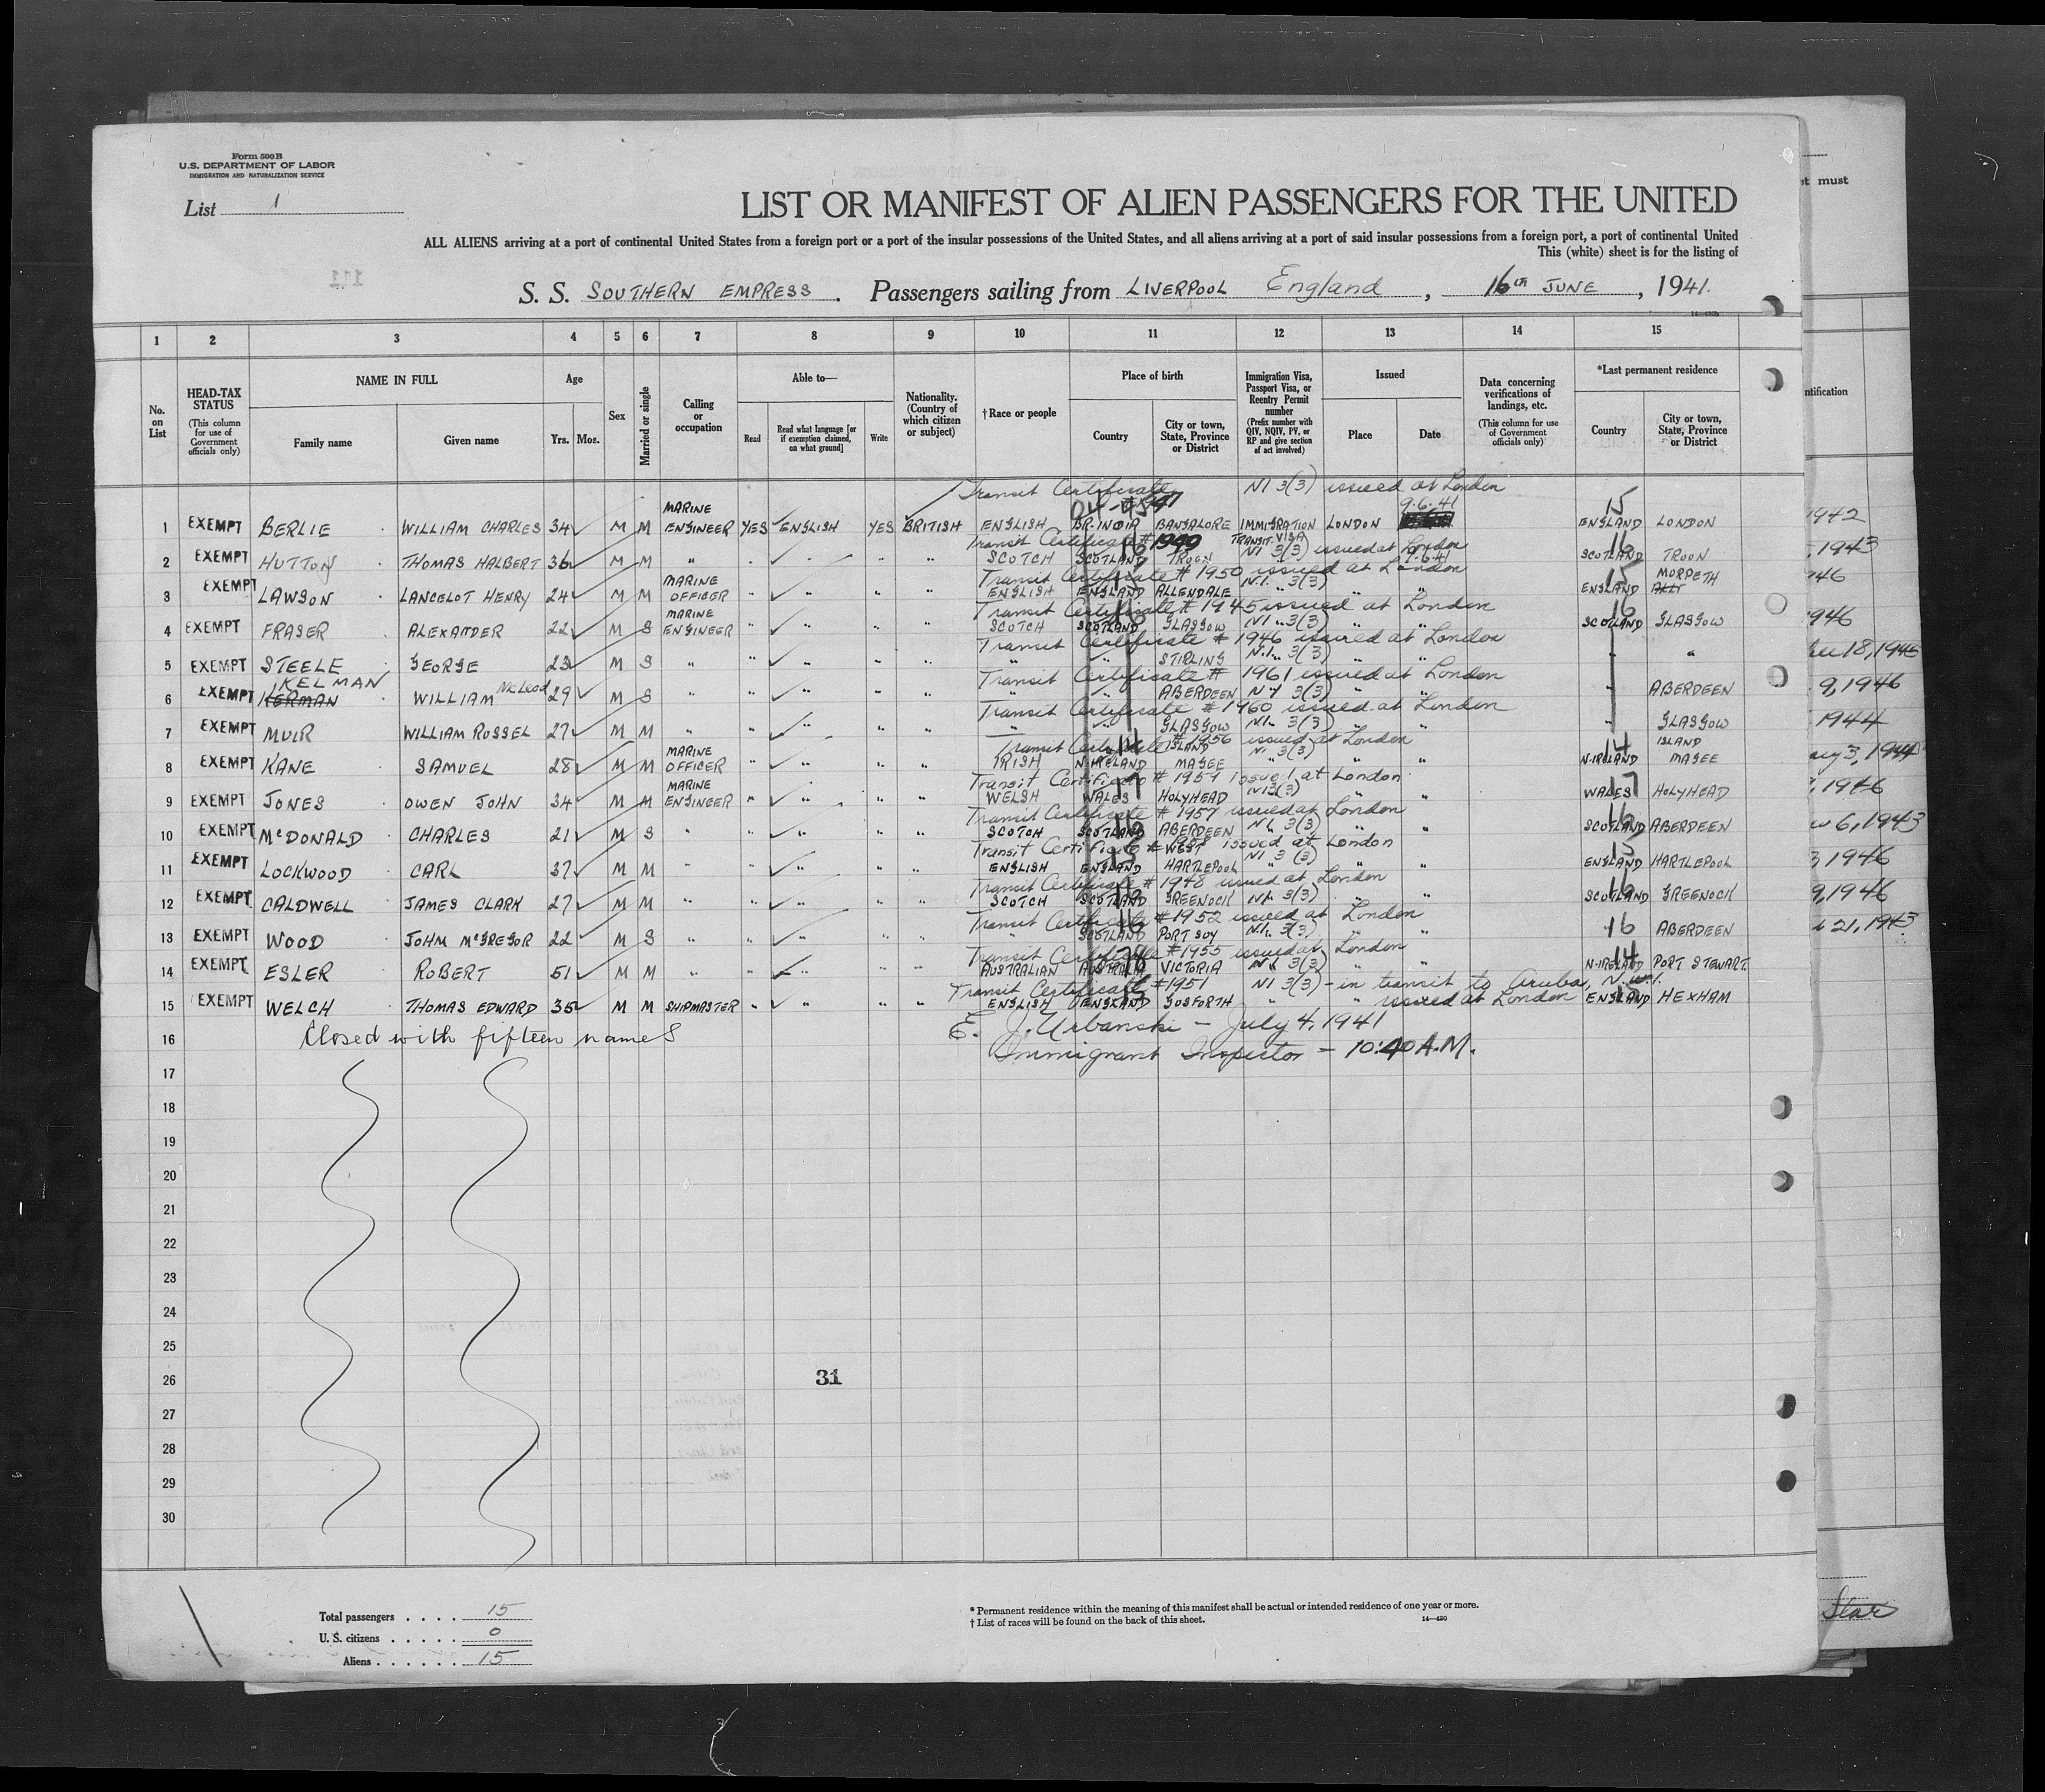 Form 500B
U.S. DEPARTMENT OF LABOR
IMMIGRATION AND NATURALIZATION SERVICE
List 1
LIST OR MANIFEST OF ALIEN PASSENGERS FOR THE UNITED
ALL ALIENS arriving at a port of continental United States from a foreign port or a port of the insular possessions of the United States, and all aliens arriving at a port of said insular possessions from a foreign port, a port of continental United
This (white) sheet is for the listing of
S. S. SOUTHERN EMPRESS. Passengers sailing from LIVERPOOL England, 16th JUNE, 1941.
1 2 3 4 5 6 7 8 9 10 11 12 13 14 15
No. on List
HEAD-TAX STATUS (This column for use of Government officials only)
NAME IN FULL Family name Given name
Age Yrs. Mos.
Sex
Married or single
Calling or occupation
Able to— Read Read what language [or if exemption claimed, on what ground] Write
Nationality. (Country of which citizen or subject)
† Race or people
Place of birth Country City or town, State, Province or District
Immigration Visa, Passport Visa, or Reentry Permit number (Prefix number with QIV, NQIV, PV, or RP and give section of act involved)
Issued Place Date
Data concerning verifications of landings, etc. (This column for use of Government officials only)
*Last permanent residence Country City or town, State, Province or District
Transit Certificate NI 3(3) issued at London
9.6.41
1 EXEMPT BERLIE WILLIAM CHARLES 34 M M MARINE ENGINEER YES ENGLISH YES BRITISH ENGLISH BR. INDIA BANGALORE IMMIGRATION TRANSIT VISA LONDON ENGLAND LONDON 15
Transit Certificate # 1949 NI 3(3) issued at London
2 EXEMPT HUTTON THOMAS HALBERT 36 M M " " " " " SCOTCH SCOTLAND TROON 9.6.41 SCOTLAND TROON 16
Transit Certificate # 1950 issued at London
3 EXEMPT LAWSON LANCELOT HENRY 24 M M MARINE OFFICER " " " " ENGLISH ENGLAND ALLENDALE N.I. 3(3) " " ENGLAND MORPETH 15
Transit Certificate # 1945 issued at London
4 EXEMPT FRASER ALEXANDER 22 M S MARINE ENGINEER " " " " SCOTCH SCOTLAND GLASGOW NI 3(3) " " SCOTLAND GLASGOW 16
Transit Certificate # 1946 issued at London
5 EXEMPT STEELE GEORGE 23 M S " " " " " " " STIRLING N.I. 3(3) " " " "
Transit Certificate # 1961 issued at London
6 EXEMPT KERMAN KELMAN WILLIAM McLeod 29 M S " " " " " " " ABERDEEN NI 3(3) " " " ABERDEEN
Transit Certificate # 1960 issued at London
7 EXEMPT MUIR WILLIAM RUSSEL 27 M M " " " " " " " GLASGOW NI 3(3) " " " GLASGOW
Transit Certificate # 1956 issued at London
8 EXEMPT KANE SAMUEL 28 M M MARINE OFFICER " " " " IRISH N-IRELAND ISLAND MAGEE NI 3(3) " " N-IRELAND ISLAND MAGEE 14
Transit Certificate # 1954 issued at London
9 EXEMPT JONES OWEN JOHN 34 M M MARINE ENGINEER " " " " WELSH WALES HOLYHEAD NI 3(3) " " WALES HOLYHEAD 17
Transit Certificate # 1957 issued at London
10 EXEMPT McDONALD CHARLES 21 M S " " " " " SCOTCH SCOTLAND ABERDEEN NI 3(3) " " SCOTLAND ABERDEEN 16
Transit Certificate # issued at London
11 EXEMPT LOCKWOOD CARL 37 M M " " " " " ENGLISH ENGLAND WEST HARTLEPOOL NI 3(3) " " ENGLAND HARTLEPOOL 15
Transit Certificate # 1948 issued at London
12 EXEMPT CALDWELL JAMES CLARK 27 M M " " " " " SCOTCH SCOTLAND GREENOCK NI 3(3) " " SCOTLAND GREENOCK 16
Transit Certificate # 1952 issued at London
13 EXEMPT WOOD JOHN McGREGOR 22 M S " " " " " " SCOTLAND PORTSOY N.I. 3(3) " " 16 ABERDEEN
Transit Certificate # 1955 issued at London
14 EXEMPT ESLER ROBERT 51 M M " " " " " AUSTRALIAN AUSTRALIA VICTORIA NI 3(3) " " N-IRELAND PORT STEWART 14
Transit Certificate # 1951 NI 3(3) - in transit to Aruba, N.W.I.
15 EXEMPT WELCH THOMAS EDWARD 35 M M SHIPMASTER " " " " ENGLISH ENGLAND GOSFORTH " " issued at London ENGLAND HEXHAM 15
16 Closed with fifteen names E. J. Urbanski - July 4, 1941
Immigrant Inspector - 10:40 A.M.
17
18
19
20
21
22
23
24
25
26 31
27
28
29
30
Total passengers . . . . 15
U. S. citizens . . . . . 0
Aliens . . . . . . 15
* Permanent residence within the meaning of this manifest shall be actual or intended residence of one year or more.
† List of races will be found on the back of this sheet. 14—430
must
ntification
1942
1943
946
946
18, 1945
9, 1946
1944
3, 1944
1946
6, 1943
1946
9, 1946
21, 1943
Star